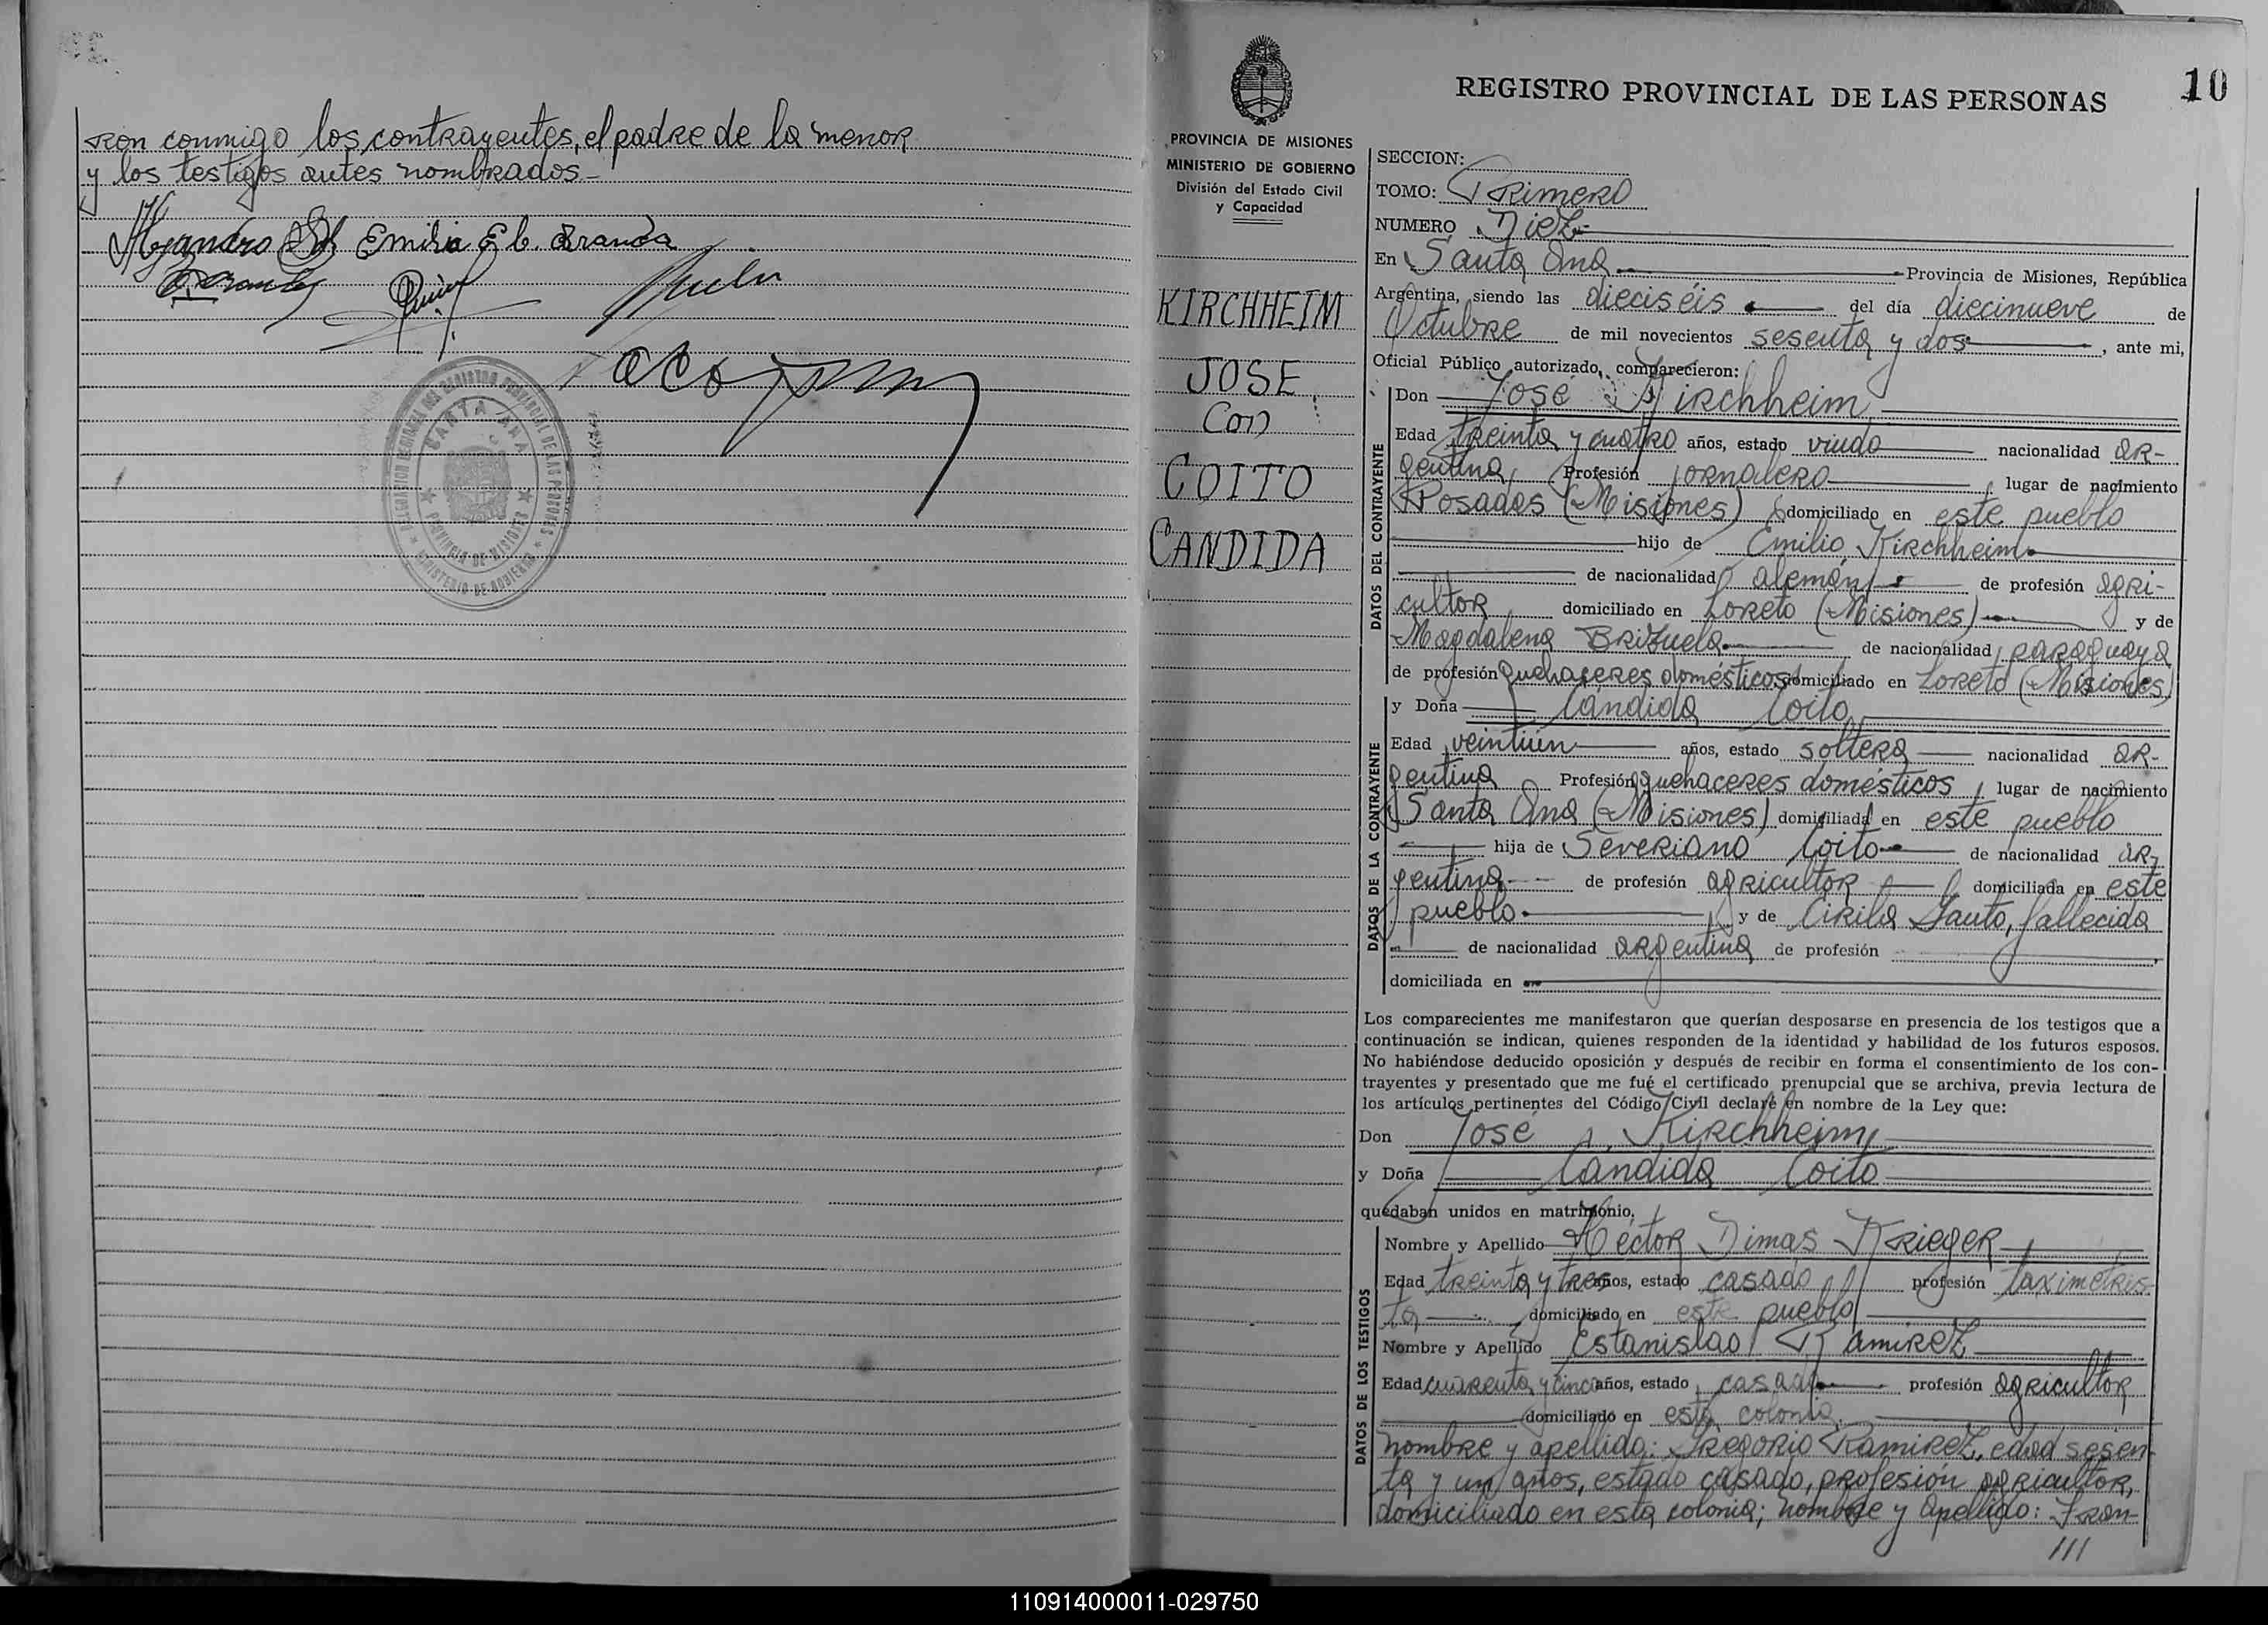 ron conmigo los contrayentes, el padre de la menor
y los testigos antes nombrados.-
Emilia E b. Aranda
SANTA ANA
PROVINCIA DE MISIONES
MINISTERIO DE GOBIERNO
10
REGISTRO PROVINCIAL DE LAS PERSONAS
PROVINCIA DE MISIONES
MINISTERIO DE GOBIERNO
División del Estado Civil
y Capacidad
KIRCHHEIM
JOSE
Con
COITO
CANDIDA
SECCION:
TOMO: Primero
NUMERO Diez
En Santa Ana Provincia de Misiones, República
Argentina, siendo las dieciséis del día diecinueve de
Octubre de mil novecientos sesenta y dos, ante mi,
Oficial Público autorizado, comparecieron:
DATOS DEL CONTRAYENTE
Don José Kirchheim
Edad treinta y cuatro años, estado viudo nacionalidad ar-
gentina, Profesión jornalero, lugar de nacimiento
Posadas (Misiones) domiciliado en este pueblo
hijo de Emilio Kirchheim
de nacionalidad alemán de profesión agri-
cultor domiciliado en Loreto (Misiones) y de
Magdalena Brizuela de nacionalidad paraguaya
de profesión quehaceres domésticos domiciliado en Loreto (Misiones)
DATOS DE LA CONTRAYENTE
y Doña Cándida Coito
Edad veintiún años, estado soltera nacionalidad ar-
gentina Profesión quehaceres domésticos, lugar de nacimiento
Santa Ana (Misiones) domiciliada en este pueblo
hija de Severiano Coito de nacionalidad ar-
gentina de profesión agricultor domiciliada en este
pueblo y de Cirila Sauto, fallecida
de nacionalidad argentina de profesión
domiciliada en
Los comparecientes me manifestaron que querían desposarse en presencia de los testigos que a
continuación se indican, quienes responden de la identidad y habilidad de los futuros esposos.
No habiéndose deducido oposición y después de recibir en forma el consentimiento de los con-
trayentes y presentado que me fué el certificado prenupcial que se archiva, previa lectura de
los artículos pertinentes del Código Civil declaré en nombre de la Ley que:
Don José Kirchheim
y Doña Cándida Coito
quedaban unidos en matrimonio.
DATOS DE LOS TESTIGOS
Nombre y Apellido Héctor Dimas Krieger
Edad treinta y tres años, estado casado profesión taximetris-
ta domiciliado en este pueblo
Nombre y Apellido Estanislao Ramirez
Edad cuarenta y cinco años, estado casado profesión agricultor
domiciliado en esta colonia.
nombre y apellido: Gregorio Ramirez, edad sesen-
ta y un años, estado casado, profesión agricultor,
domiciliado en esta colonia; nombre y apellido: Fran-
///
110914000011-029750